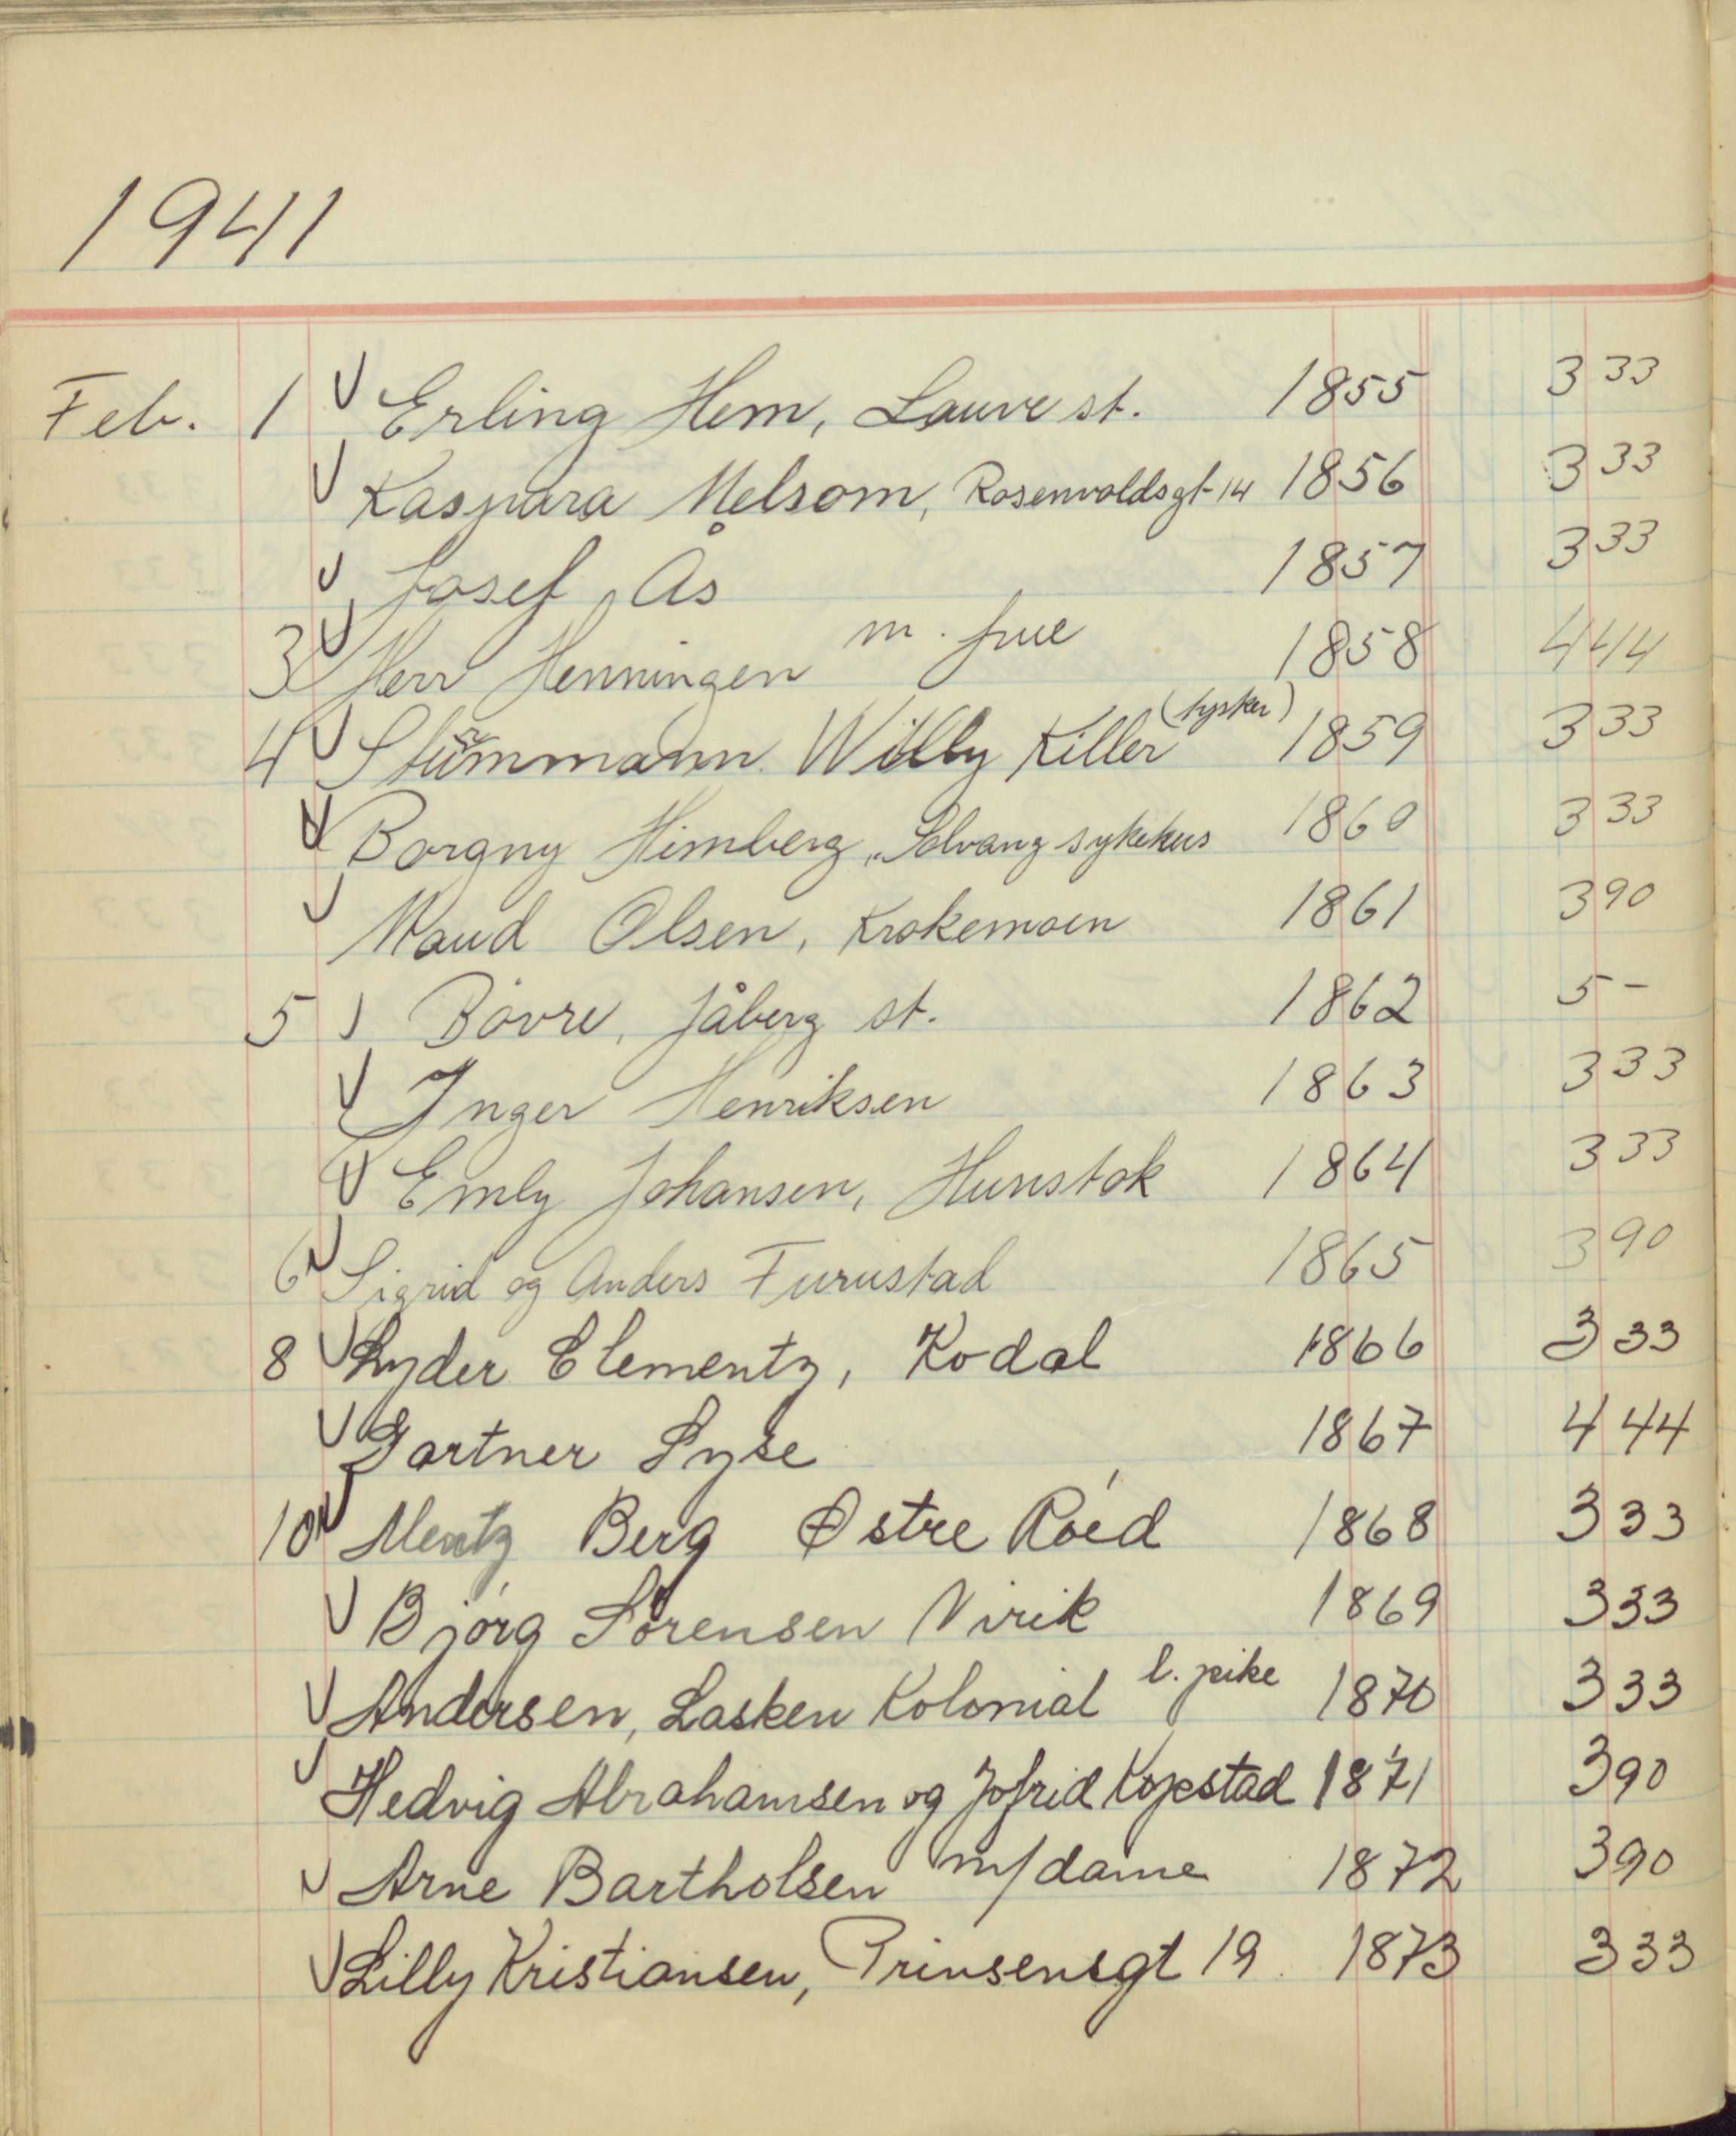 1941
Feb. 1 Erling Hem, Lauve st. 1855 3 33
Kaspara Melsom, Rosenvoldsgt 14 1856 3 33
Josef Ås 1857 3 33
3 Herr Henningen m. frue 1858 4 44
4 Willy Killer (tysker) 1859 3 33
Borgny Himberg, Solvang sykehus 1860 3 33
Maud Olsen, Krokemoen 1861 3 90
5 Bøvre, Jåberg st. 1862 5 -
Inger Henriksen 1863 3 33
Emly Johansen, Hunstok 1864 3 33
6 Sigrid og Anders Furustad 1865 3 90
8 Lyder Clementz, Kodal 1866 3 33
Gartner Lyse 1867 4 44
10 Mentz Berg Østre Roéd 1868 3 33
Bjørg Sørensen Virik 1869 3 33
Andersen, Lasken Kolonial l. pike 1870 3 33
Hedvig Abrahamsen og Jofrid Kopestad 1871 3 90
Arne Bartholsen m/dame 1872 3 90
Lilly Kristiansen, Prinsensgt 19 1873 3 33